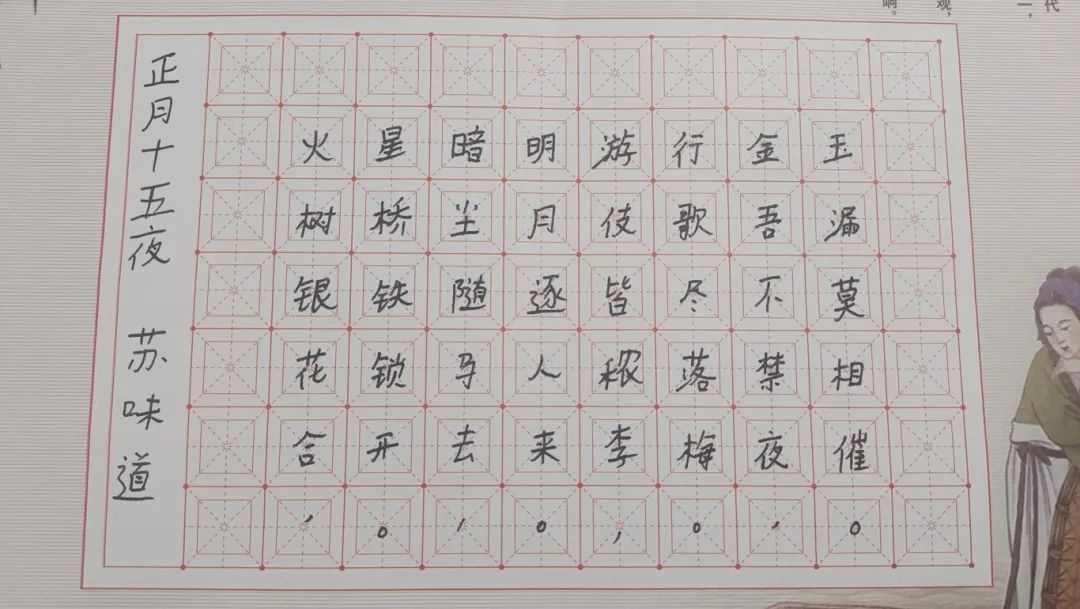 正月十五夜 苏味道
火树银花合,
星桥铁锁开。
暗尘随马去,
明月逐人来。
游伎皆秾李,
行歌尽落梅。
金吾不禁夜,
玉漏莫相催。
代
一,
观,
响。